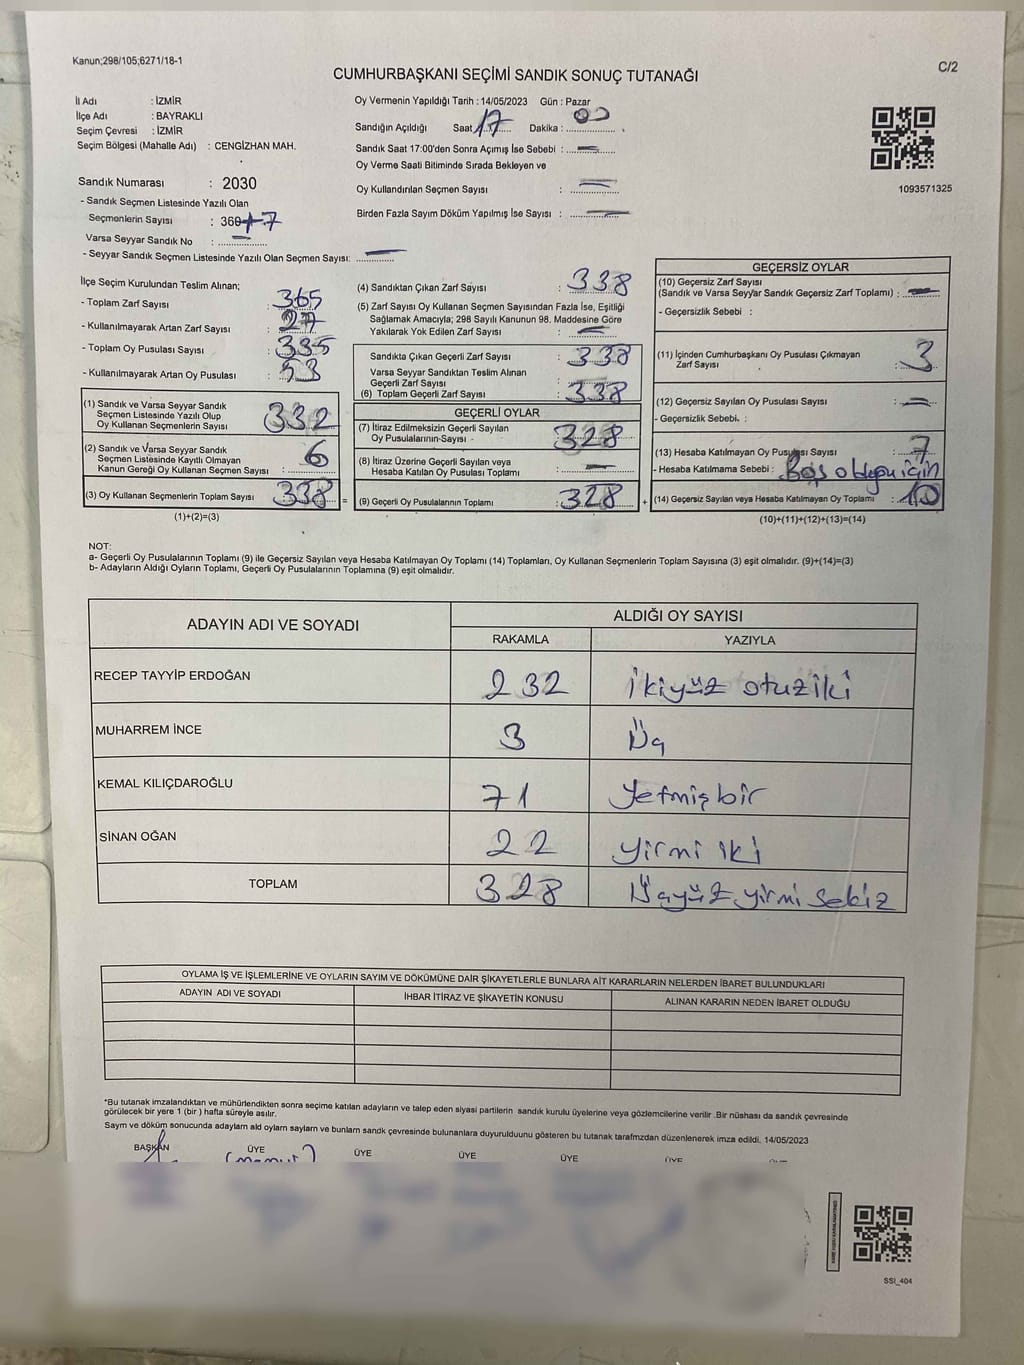 Kanun;298/105;6271/18-1
C/2
CUMHURBAŞKANI SEÇİMİ SANDIK SONUÇ TUTANAĞI
İl Adı : İZMİR
İlçe Adı : BAYRAKLI
Seçim Çevresi : İZMİR
Seçim Bölgesi (Mahalle Adı) : CENGİZHAN MAH.
Sandık Numarası : 2030
- Sandık Seçmen Listesinde Yazılı Olan
Seçmenlerin Sayısı : 360+7
Varsa Seyyar Sandık No : —
- Seyyar Sandık Seçmen Listesinde Yazılı Olan Seçmen Sayısı: —
Oy Vermenin Yapıldığı Tarih : 14/05/2023 Gün : Pazar
Sandığın Açıldığı Saat 17 Dakika : 00
Sandık Saat 17:00'den Sonra Açımış İse Sebebi : —
Oy Verme Saati Bitiminde Sırada Bekleyen ve
Oy Kullandırılan Seçmen Sayısı : —
Birden Fazla Sayım Döküm Yapılmış İse Sayısı : —
1093571325
İlçe Seçim Kurulundan Teslim Alınan;
- Toplam Zarf Sayısı : 365
- Kullanılmayarak Artan Zarf Sayısı : 27
- Toplam Oy Pusulası Sayısı :
- Kullanılmayarak Artan Oy Pusulası :
(1) Sandık ve Varsa Seyyar Sandık
Seçmen Listesinde Yazılı Olup
Oy Kullanan Seçmenlerin Sayısı : 332
(2) Sandık ve Varsa Seyyar Sandık
Seçmen Listesinde Kayıtlı Olmayan
Kanun Gereği Oy Kullanan Seçmen Sayısı : 6
(3) Oy Kullanan Seçmenlerin Toplam Sayısı : 338 =
(1)+(2)=(3)
(4) Sandıktan Çıkan Zarf Sayısı : 338
(5) Zarf Sayısı Oy Kullanan Seçmen Sayısından Fazla İse, Eşitliği
Sağlamak Amacıyla; 298 Sayılı Kanunun 98. Maddesine Göre
Yakılarak Yok Edilen Zarf Sayısı : —
Sandıkta Çıkan Geçerli Zarf Sayısı : 338
Varsa Seyyar Sandıktan Teslim Alınan
Geçerli Zarf Sayısı :
(6) Toplam Geçerli Zarf Sayısı : 338
GEÇERLİ OYLAR
(7) İtiraz Edilmeksizin Geçerli Sayılan
Oy Pusulalarının Sayısı : 328
(8) İtiraz Üzerine Geçerli Sayılan veya
Hesaba Katılan Oy Pusulası Toplamı : —
(9) Geçerli Oy Pusulalarının Toplamı : 328 +
GEÇERSİZ OYLAR
(10) Geçersiz Zarf Sayısı
(Sandık ve Varsa Seyyar Sandık Geçersiz Zarf Toplamı) : —
- Geçersizlik Sebebi :
(11) İçinden Cumhurbaşkanı Oy Pusulası Çıkmayan
Zarf Sayısı : 3
(12) Geçersiz Sayılan Oy Pusulası Sayısı : —
- Geçersizlik Sebebi. :
(13) Hesaba Katılmayan Oy Pusulası Sayısı : 7
- Hesaba Katılmama Sebebi : Boş olduğu için
(14) Geçersiz Sayılan veya Hesaba Katılmayan Oy Toplamı : 10
(10)+(11)+(12)+(13)=(14)
NOT:
a- Geçerli Oy Pusulalarının Toplamı (9) ile Geçersiz Sayılan veya Hesaba Katılmayan Oy Toplamı (14) Toplamları, Oy Kullanan Seçmenlerin Toplam Sayısına (3) eşit olmalıdır. (9)+(14)=(3)
b- Adayların Aldığı Oyların Toplamı, Geçerli Oy Pusulalarının Toplamına (9) eşit olmalıdır.
ADAYIN ADI VE SOYADI
ALDIĞI OY SAYISI
RAKAMLA YAZIYLA
RECEP TAYYİP ERDOĞAN 232 ikiyüz otuziki
MUHARREM İNCE 3 Üç
KEMAL KILIÇDAROĞLU 71 Yetmiş bir
SİNAN OĞAN 22 yirmi iki
TOPLAM 328 Üçyüz yirmi sekiz
OYLAMA İŞ VE İŞLEMLERİNE VE OYLARIN SAYIM VE DÖKÜMÜNE DAİR ŞİKAYETLERLE BUNLARA AİT KARARLARIN NELERDEN İBARET BULUNDUKLARI
ADAYIN ADI VE SOYADI İHBAR İTİRAZ VE ŞİKAYETİN KONUSU ALINAN KARARIN NEDEN İBARET OLDUĞU
*Bu tutanak imzalandıktan ve mühürlendikten sonra seçime katılan adayların ve talep eden siyasi partilerin sandık kurulu üyelerine veya gözlemcilerine verilir .Bir nüshası da sandık çevresinde
görülecek bir yere 1 (bir ) hafta süreyle asılır.
Sayım ve döküm sonucunda adayların ald oyların sayların ve bunların sandk çevresinde bulunanlara duyurulduunu gösteren bu tutanak tarafmzdan düzenlenerek imza edildi. 14/05/2023
BAŞKAN ÜYE ÜYE ÜYE ÜYE ÜYE
SSİ_404